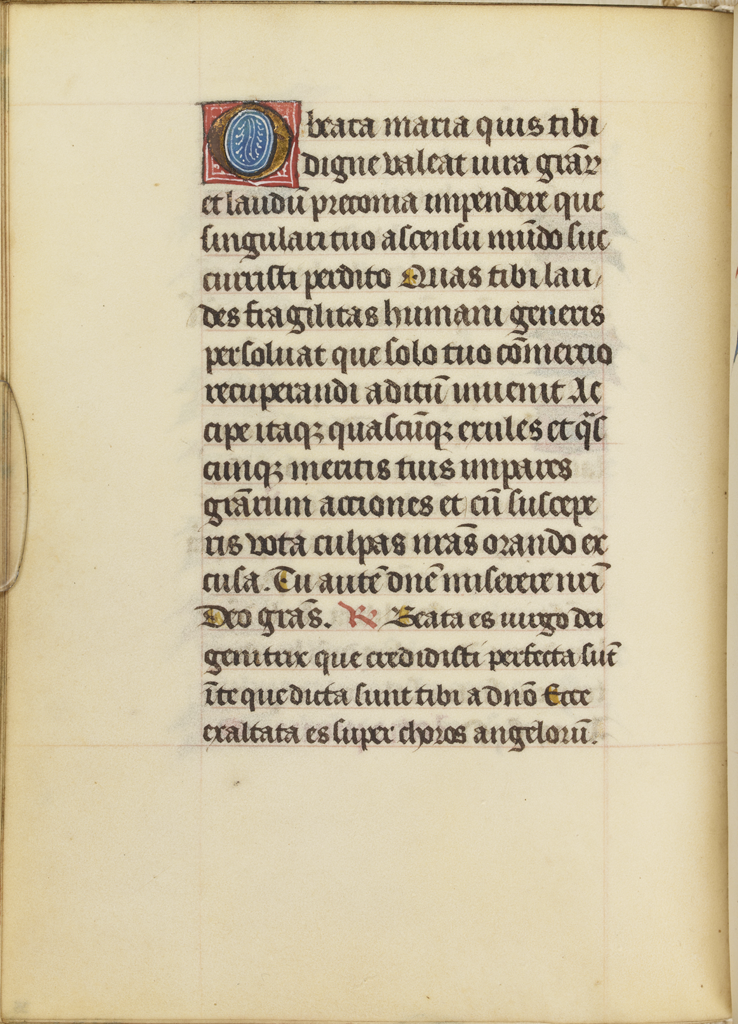 O beata maria quis tibi
digne valeat iura grār
et laudū preconia impendere que
singulari tuo ascensu mūdo suc
curristi perdito Quas tibi lau/
des fragilitas humani generis
persoluat que solo tuo cōmercio
recuperandi aditū inuenit Ac
cipe itaqꝫ quascūqꝫ exiles et q̄s
cunqꝫ meritis tuis impares
grārum acciones et cū suscepe
ris vota culpas nr̄as orando ex
cusa. Tu autē dn̄e miserere nr̄i
Deo grās. R Beata es uirgo dei
genitrix que credidisti perfecta sūt
īte que dicta sunt tibi a dnō Ecce
exaltata es super choros angelorū.